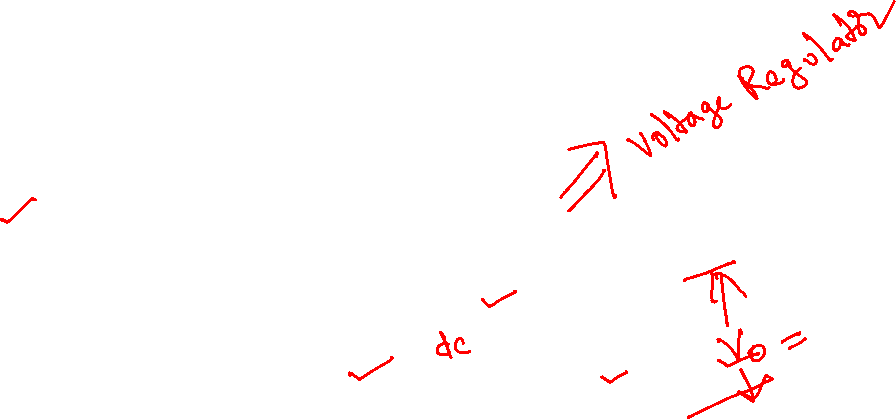 Voltage Regulator
dc
Vo =